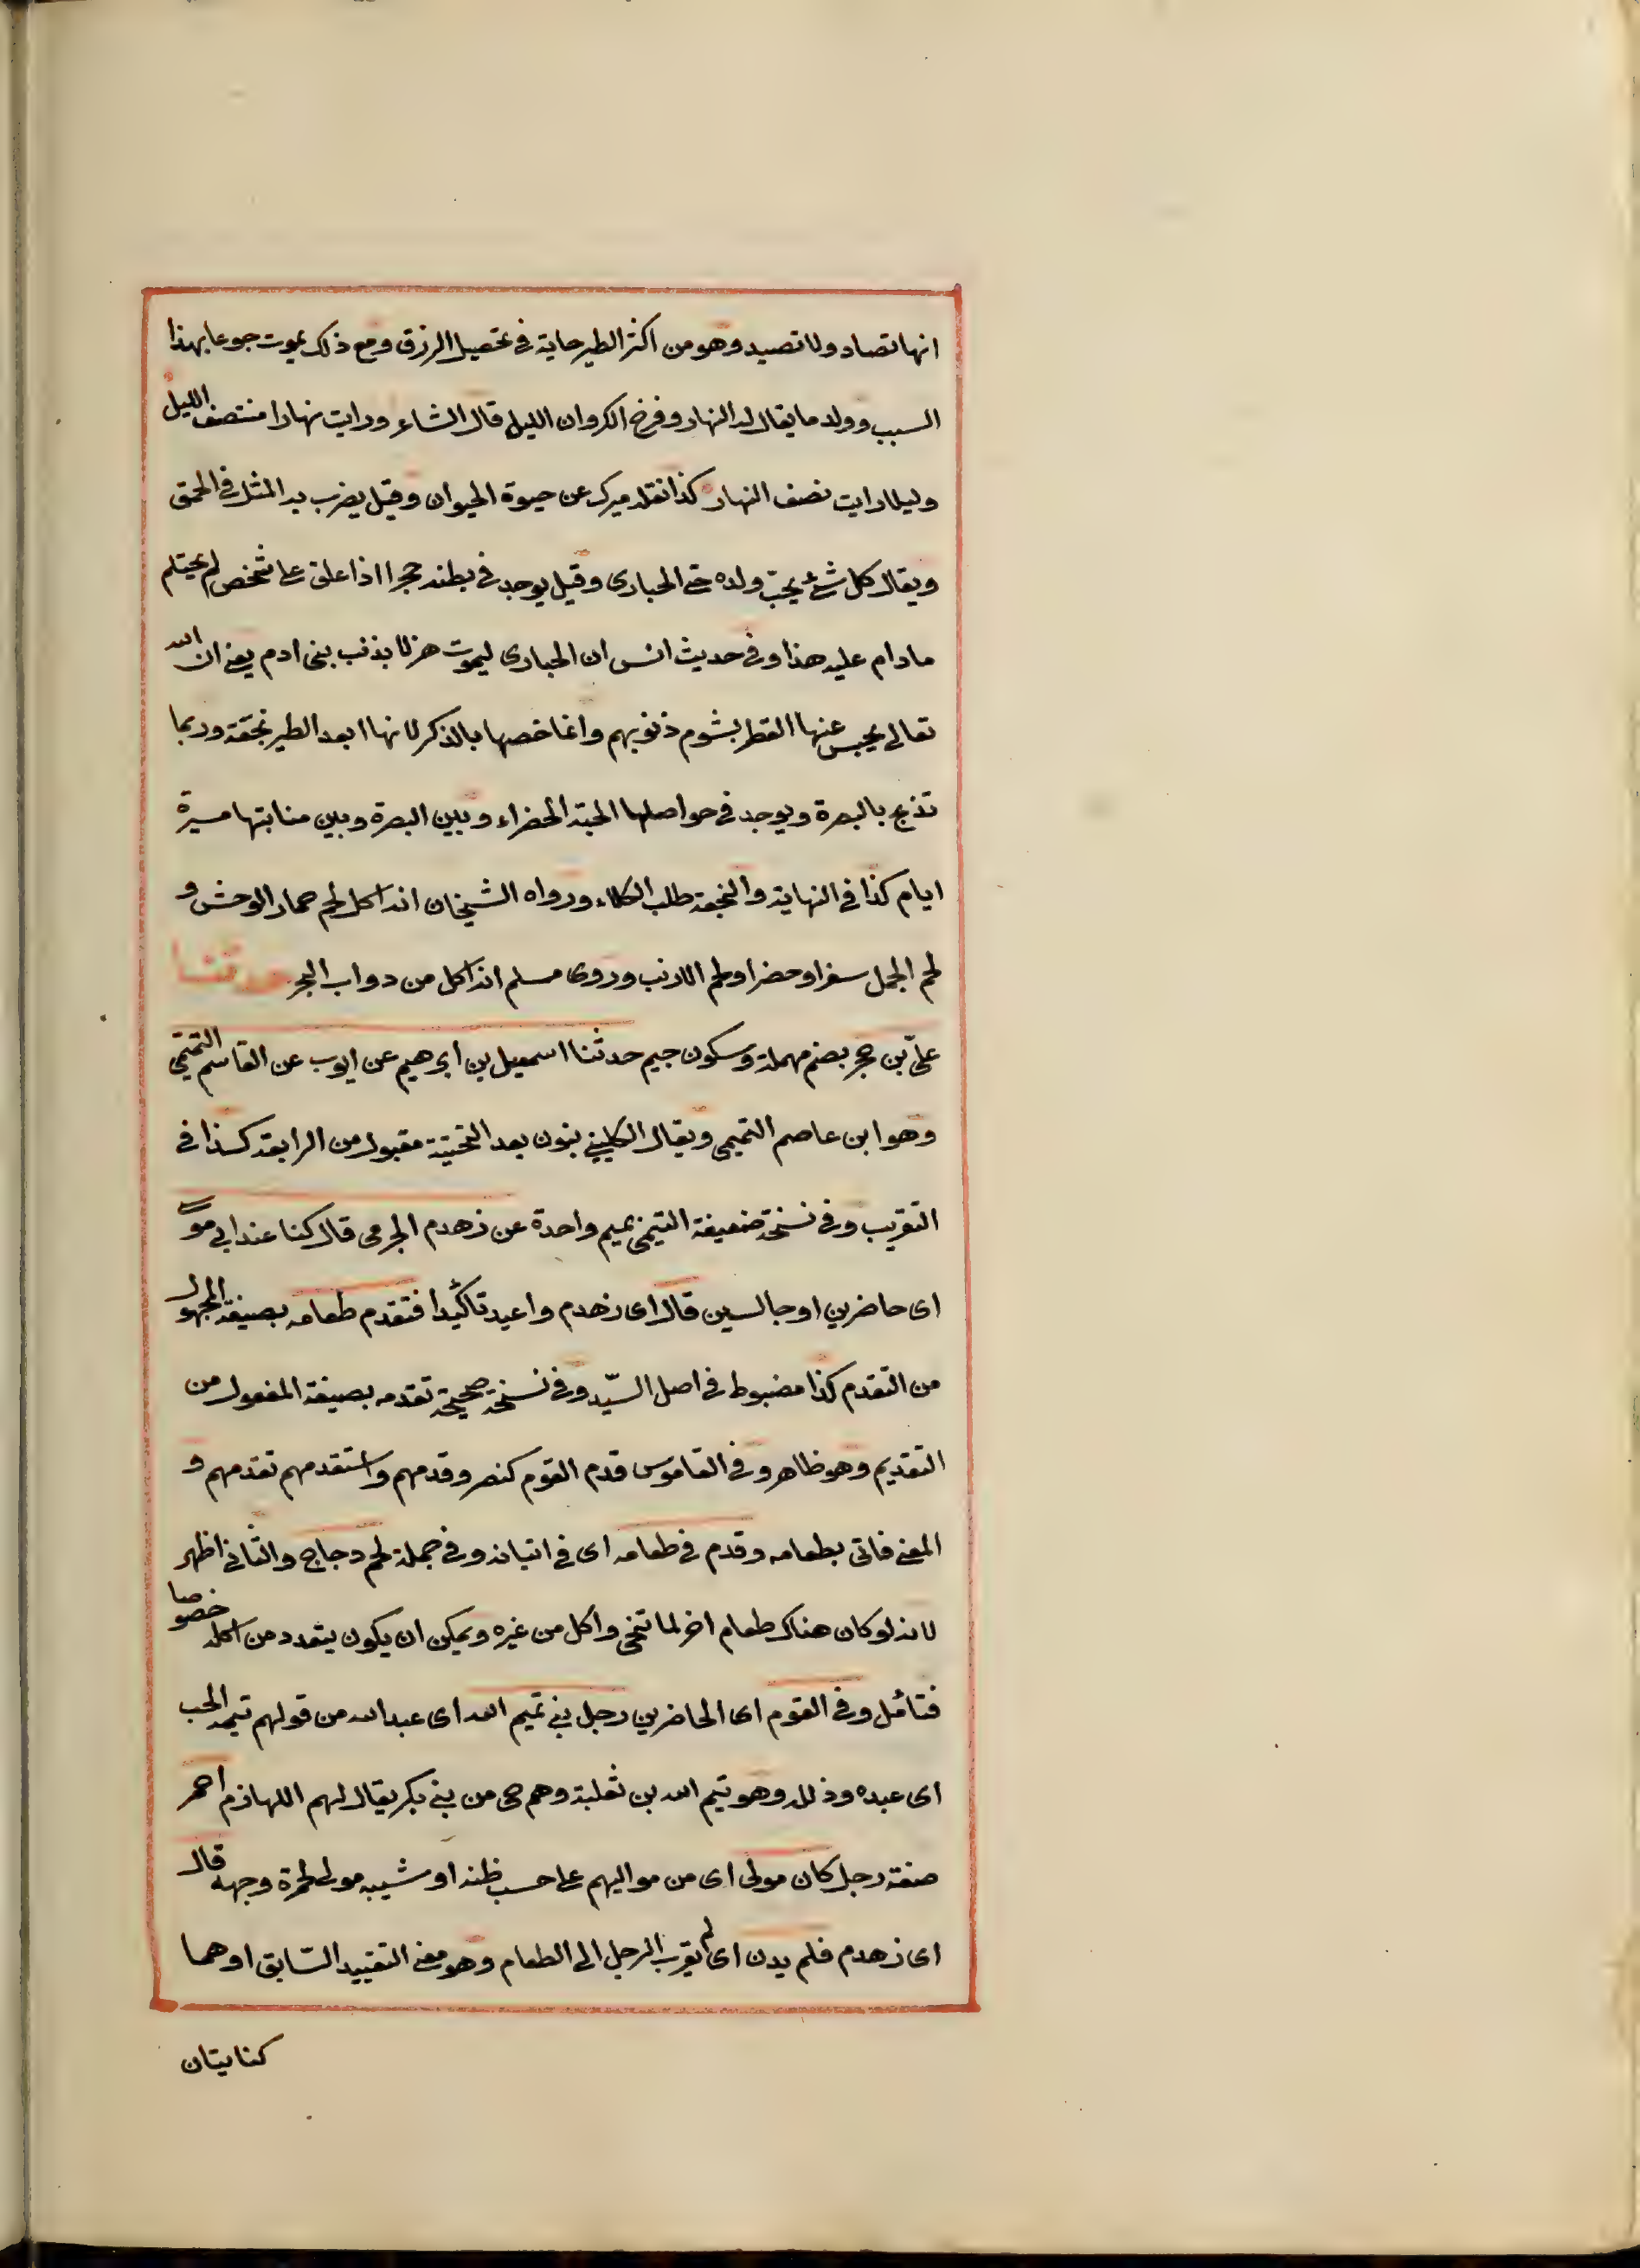 انها تصاد ولا تصيد وهو من اكثر الطير حاية في تحصيل الرزق ومع ذلك يموت جوعا بهذا
السبب وولدها يقال له النهار وفرخ الكروان الليل قال الشاعر ورايت نهارا منتصف الليل
وليلا رايت نصف النهار كذا نقله ميرك عن حيوة الحيوان وقيل يضرب به المثل في الحمق
ويقال كل شئ يحب ولده حتى الحبارى وقيل يوجد في بطنه حجرا اذا علق على شخص لم يحتلم
مادام عليه هذا وفي حديث انس ان الحبارى ليموت هزلا بذنب بنى ادم يعني ان الله
تعالى يحبس عنها القطر بشوم ذنوبهم وانما خصها بالذكر لانها ابعد الطير نجعة وربما
تذبح بالبصرة ويوجد في حواصلها الحبة الخضراء وبين البصرة وبين منابتها مسيرة
ايام كذا في النهاية والنجعة طلب الكلاء ورواه الشيخان انه اكل لحم حمار الوحش و
لحم الجمل سفرا وحضرا ولحم الارنب وروى مسلم انه اكل من دواب البحر حدثنا
علي بن حجر بضم مهملة وسكون جيم حدثنا اسمعيل بن ابرهيم عن ايوب عن القاسم التميمي
وهو ابن عاصم التميمي ويقال الكليني بنون بعد التحتية مقبول من الرابعة كذا في
التقريب وفي نسخة ضعيفة التيمي بميم واحدة عن زهدم الجرمى قال كنا عند ابي موسى
اى حاضرين او جالسين قال اى زهدم واعيد تاكيدا فتقدم طعامه بصيغة المجهول
من التقدم كذا مضبوط في اصل السيّد وفي نسخة صحيحة تقدمه بصيغة المفعول من
التقديم وهو ظاهر وفي القاموس قدم القوم كنصر وقدمهم واستقدمهم تقدمهم و
المعنى فاتى بطعامه وقدم في طعامه اى في اتيانه وفي جملة لحم دجاج والثاني اظهر
لانه لو كان هناك طعام اخر لما تنحى واكل من غيره ويمكن ان يكون يتعدد من اكله خصوصا
فتامل وفي القوم اى الحاضرين رجل بني تميم الله اى عبد الله من قولهم تيمه الحب
اى عبده وذلله وهو تيم الله بن ثعلبة وهم حى من بني بكر يقال لهم اللهازم احمر
صفة رجل كان مولى اى من مواليهم على حسب ظنه او شبيه مولى لحمرة وجهه قال
اى زهدم فلم يدن اى لم يقرب الرجل الى الطعام وهو معنى التقييد السّابق او هما
كنايتان